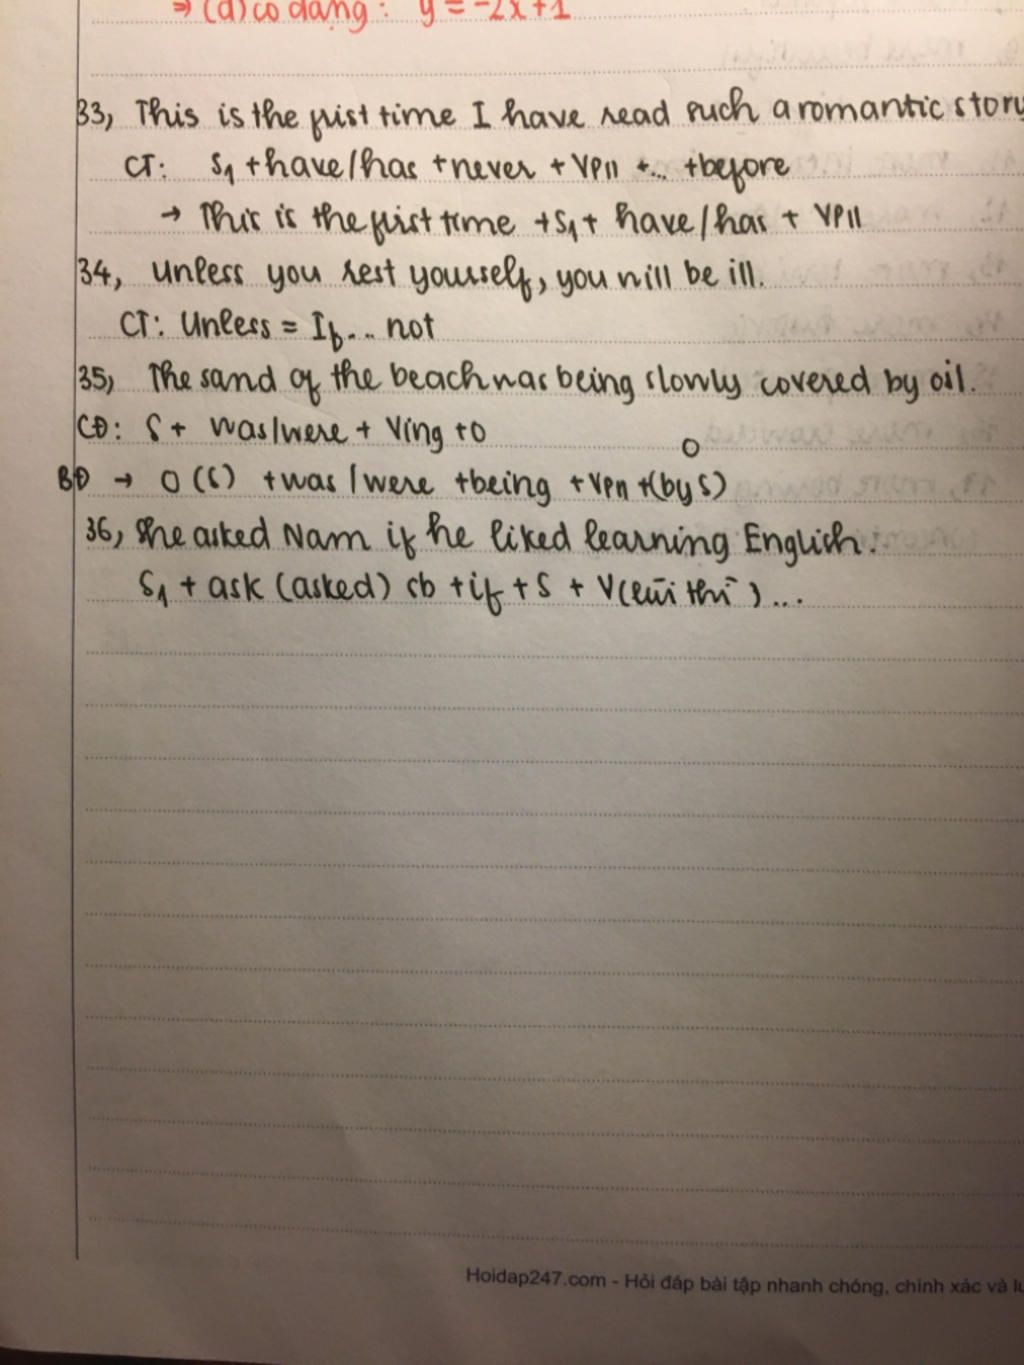 ⇒ (d) có dạng: y = -2x+1
33, This is the first time I have read such a romantic story
CT: S1 + have/has + never + VPII + ... + before
→ This is the first time + S1 + have/has + VPII
34, Unless you rest yourself, you will be ill.
CT: Unless = If ... not
35, The sand of the beach was being slowly covered by oil.
CĐ: S + was/were + Ving + O
BĐ → O (S) + was/were + being + VPII + (by S)
O
36, She asked Nam if he liked learning English.
S1 + ask (asked) sb + if + S + V(lùi thì) ...
Hoidap247.com - Hỏi đáp bài tập nhanh chóng, chính xác và